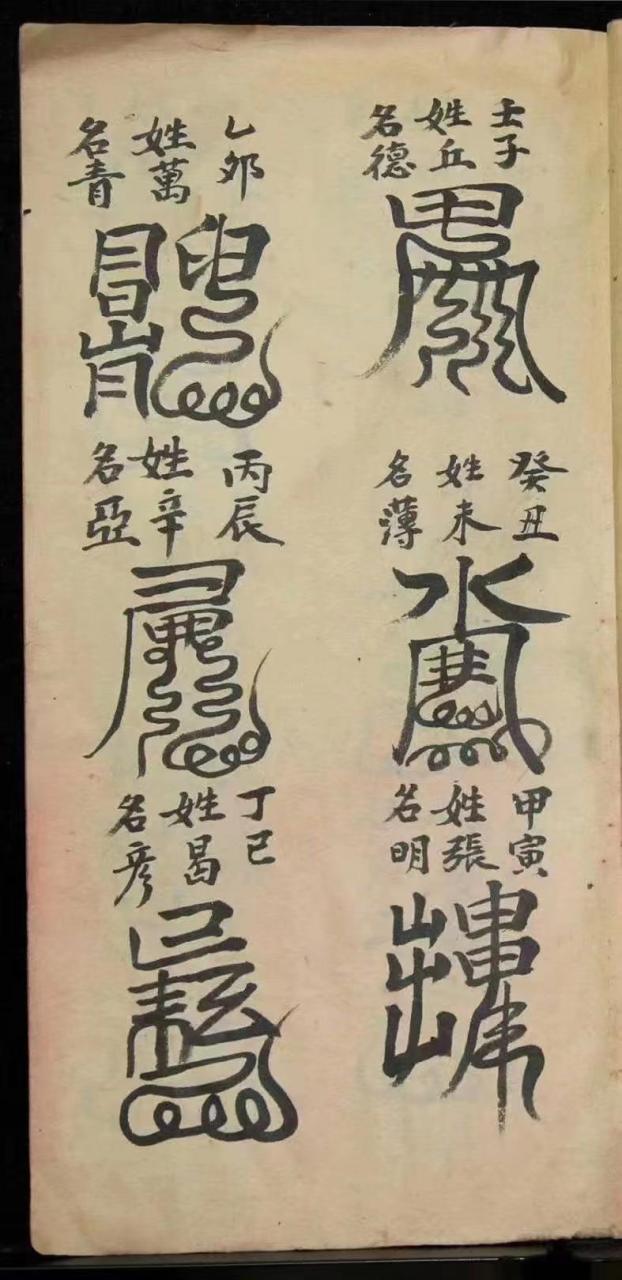 壬子
姓丘
名德
癸丑
姓未
名薄
甲寅
姓張
名明
乙夘
姓萬
名青
丙辰
姓辛
名亞
丁巳
姓曷
名彦